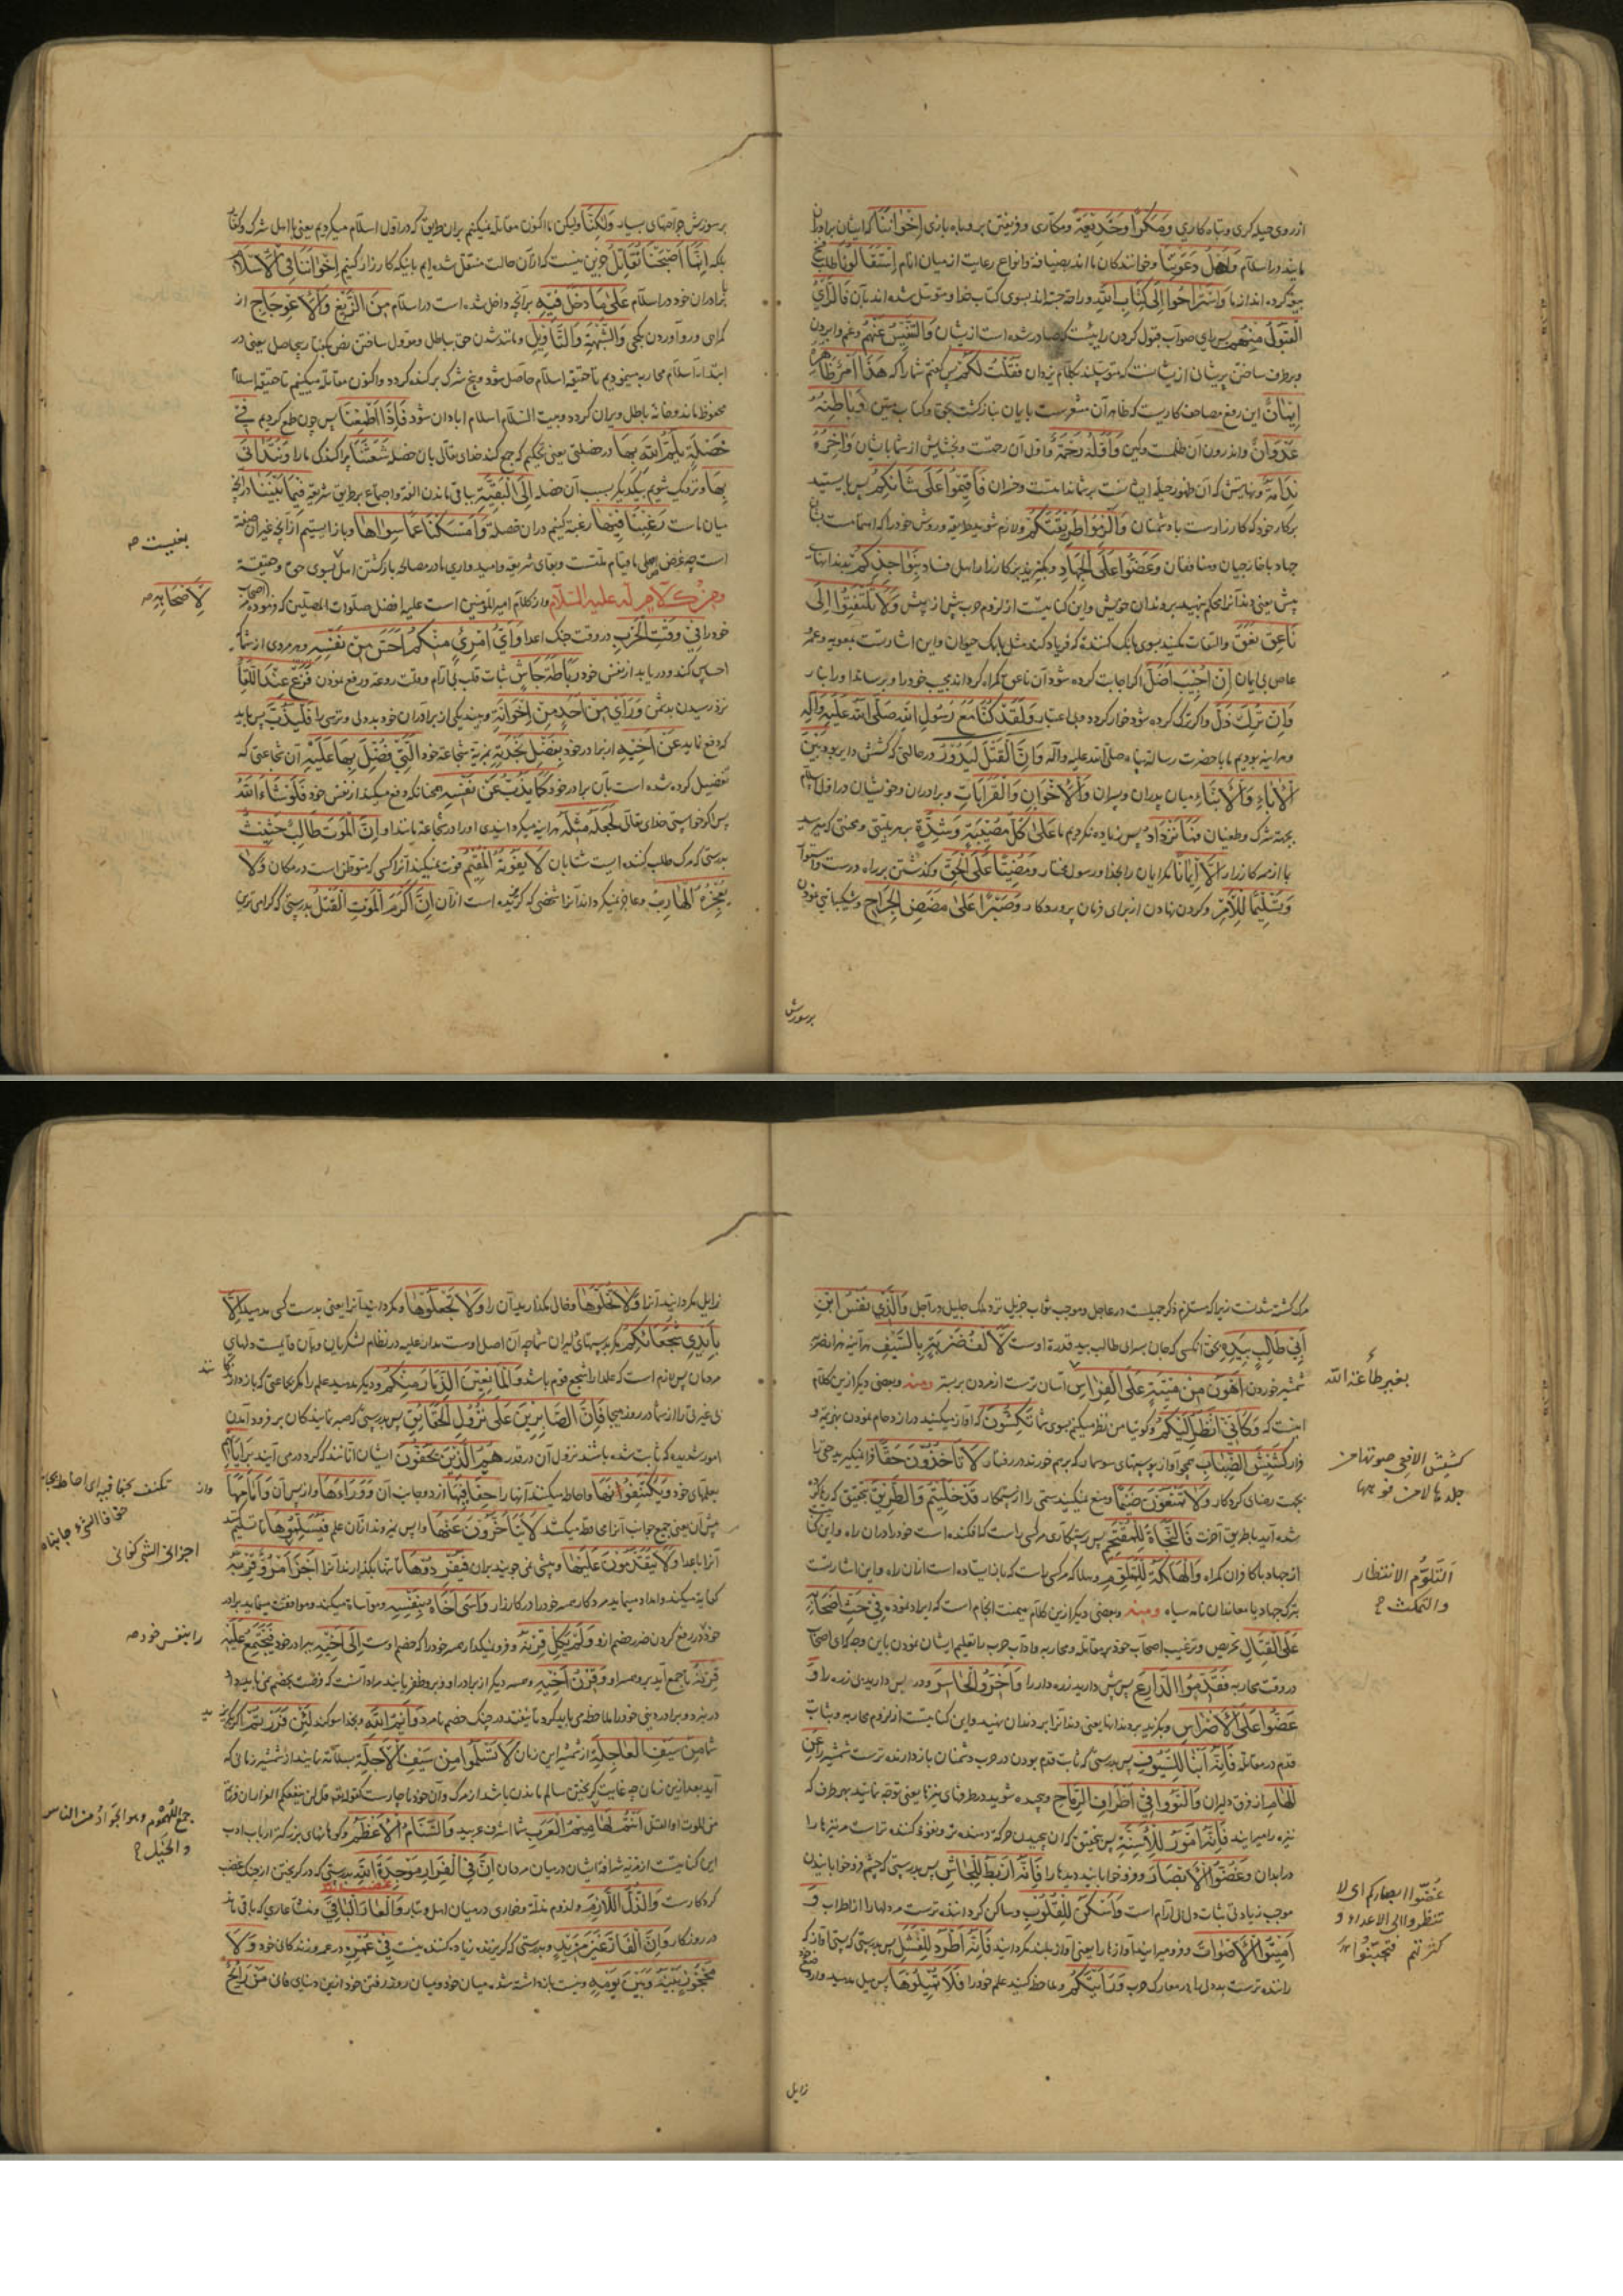 ازروی حیله کری وتباه کاری وَمَكْرًا وَخَدِيعَةً ومکاری وفریفتن بروباه بازی اِخْوَانُنَا که ایشان برادران
مااند در اسلام وَاَهْلُ دَعْوَتِنَا وخوانندکان مااند بضیافه وانواع رعایت از میان انام اِسْتَقَالُونَا طلب فسخ
بیعة کرده اند از ما وَاسْتَرَاحُوا اِلَى كِتَابِ اللّٰهِ وراحت جسته اند بسوی کتاب خدا ومتوسل شده اند بآن فَالرَّأْيُ
الْقَبُولُ مِنْهُمْ پس رای صواب قبول کردن راییست که صادر شده است ازیشان وَالتَّنْفِيسُ عَنْهُمْ وغم وابردن
وبرطرف ساختن پریشان ازیشانست که متوسلند بکلام یزدان فَقُلْتُ لَكُمْ پس کفتم شمارا که هَذَا اَمْرٌ ظَاهِرُهُ
اِيمَانٌ این رفع مصاحف کاریست که ظاهر آن مشعرست بایمان بنابر کشت بحق وکتاب مبین وَبَاطِنُهُ
عُدْوَانٌ واندرون آن ظلمست وکین وَاَوَّلُهُ رَحْمَةٌ واول آن رحمت وبخشایش از شما بایشان وَآخِرُهُ
نَدَامَةٌ ونهایتش که آن ظهور حیله ایشانست برشما ندامت وخزان فَاَقِيمُوا عَلَى شَأْنِكُمْ پس بایستید
برکار خود که کارزارست با دشمنان وَالْزَمُوا طَرِيقَتَكُمْ ولازم شوید طریقه وروش خود را که استقامت
جهاد با خارجیان ومنافقان وَعَضُّوا عَلَى الْجِهَادِ وبکزید بر کارزار اهل فساد بِنَوَاجِذِكُمْ بدندانهای
پیش یعنی دندانرا محکم نهید بر دندان خویش واین کنایتست از لزوم حرب بیش از پیش وَلَا تَلْتَفِتُوا اِلَى
نَاعِقٍ نَعَقَ والتفات مکنید بسوی بانک کننده که فریاد کند مثل بانک حیوان واین اشارتست بمعویه وعمر
عاص بی ایمان اِنْ اُجِيبَ اَضَلَّ اکر اجابت کرده شود آن ناعق کمراه کرداند مجیب خود را
وَاِنْ تُرِكَ ذَلَّ واکر ترک کرده شود خوار کردد وبی اعتبار وَلَقَدْ كُنَّا مَعَ رَسُولِ اللّٰهِ صَلَّى اللّٰهُ عَلَيْهِ وَآلِهِ
وهراینه بودیم ما با حضرت رسالة پناه صلی الله علیه وآله وَاِنَّ الْقَتْلَ لَيَدُورُ در حالتی که کشش دایر بود بَيْنَ
الْآبَاءِ وَالْاَبْنَاءِ میان پدران وپسران وَالْاِخْوَانِ وَالْقَرَابَاتِ وبرادران وخویشان در اول اسلام
بجهة شرک وطغیان فَمَا نَزْدَادُ پس زیاده نکردیم ما عَلَى كُلِّ مُصِيبَةٍ وَشِدَّةٍ بر هر بلیتی ومحنتی که میرسید
باازممر کارزار اِلَّا اِيمَانًا مکر ایمان را بخدا ورسول مختار وَمُضِيًّا عَلَى الْحَقِّ وکذشتن بر راه درست
وَتَسْلِيمًا لِلْاَمْرِ وکردن نهادن از برای فرمان پروردکار وَصَبْرًا عَلَى مَضَضِ الْجِرَاحِ وشکیبایی نمودن
برسوزش
برسوزش جراحتهای بسیار وَلَكِنَّا ولیکن ما اکنون مقاتله نمیکنیم بران طریق که در اول اسلام میکردیم یعنی با اهل شرک وکفار
بلکه اِنَّمَا اَصْبَحْنَا نُقَاتِلُ جزین نیست که ازآن حالت منتقل شده ایم بانیکه کارزار کنیم اِخْوَانَنَا فِي الْاِسْلَامِ
برادران خود در اسلام عَلَى مَا دَخَلَ فِيهِ برآنچه داخل شده است در اسلام مِنَ الزَّيْغِ وَالْاِعْوِجَاجِ از
کمراهی ورو آوردن بکجی وَالشُّبْهَةِ وَالتَّأْوِيلِ ومانند شدن حق بباطل
ابتداء اسلام محاربه مینمودیم تا حقیقه اسلام حاصل شود وبیخ شرک برکنده کردد واکنون مقاتله میکنیم تا حقیقه اسلام
محفوظ ماند وخانه باطل ویران کردد وبیت السلام اسلام ابادان شود فَاِذَا طَمِعْنَا پس چون طمع کردیم فِي
خَصْلَةٍ يَلُمُّ اللّٰهُ بِهَا در خصلتی یعنی تحکیم که جمع کند خدای تعالی بان خصله شَعَثَنَا پراکندکی ما را وَنَتَدَانَى
بِهَا ونزدیک شویم بیکدیکر بسبب آن خصله اِلَى الْبَقِيَّةِ بباقی ماندن الفة واجتماع بر طریق شریعة فِيمَا بَيْنَنَا درآنچه
میان ماست رَغِبْنَا فِيهَا رغبة کنیم دران خصلة وَاَمْسَكْنَا عَمَّا سِوَاهَا وباز ایستیم ازآنچه غیر آن خصلة
است چه غرض اصلی ما قیام ملتست وبقای شریعة وامیدواری ما در مصالحه باز کشتن اهل بسوی حق وحقیقة
بغییست صه
ومن كلام له علیه السلام وازکلام امیرالمؤمنین است علیه افضل صلوات المصلین که فرموده اصحاب
لِاَصْحَابِهِ صه
خود را فِي وَقْتِ الْحَرْبِ در وقت جنک اعدا وَاَيُّ امْرِئٍ مِنْكُمْ اَحَسَّ مِنْ نَفْسِهِ وهر مردی از شما که
احساس کند ودریابد از نفس خود رَبَاطَةَ جَاْشٍ ثبات قلب بی آرام وقت روعة ورفع نمودن فزع عِنْدَ اللِّقَاءِ
نزد رسیدن بدشمن وَرَأَى مِنْ اَحَدٍ مِنْ اِخْوَانِهِ وبیند یکی از برادران خود بددلی وترسی را فَلْيَذُبَّ پس باید
که دفع نماید عَنْ اَخِيهِ از برادر خود بِفَضْلِ نَجْدَتِهِ بمزیة شجاعة خود الَّتِي فُضِّلَ بِهَا عَلَيْهِ آن شجاعتی که
تفضیل کرده شده است بآن برادر خود كَمَا يَذُبُّ عَنْ نَفْسِهِ همچنانکه دفع میکند از نفس خود فَلَوْ شَاءَ اللّٰهُ
پس اکر خواستی خدای تعالی لَجَعَلَهُ مِثْلَهُ هراینه میکردانیدی اورا در شجاعة مانند او اِنَّ الْمَوْتَ طَالِبٌ حَثِيثٌ
بدرستی که مرک طلب کننده ایست شتابان لَا يَفُوتُهُ الْمُقِيمُ فوت نمیکند آنرا کسی که متوطن است در مکان وَلَا
يُعْجِزُهُ الْهَارِبُ وعاجز نمیکرداند آنرا شخصی که کریخته است ازآن اِنَّ اَكْرَمَ الْمَوْتِ الْقَتْلُ بدرستی که کرامی ترین
مرک کشته شدنست زیرا که مستلزم ذکر جمیلست در عاجل وموجب ثواب جزیل نزد ملک جلیل در آجل وَالَّذِي نَفْسُ ابْنِ
اَبِي طَالِبٍ بِيَدِهِ بحق آنکسی که جان پسر ابی طالب بید قدرة اوست لَاَلْفُ ضَرْبَةٍ بِالسَّيْفِ هرآینه هزار ضربة
شمشیر خوردن اَهْوَنُ مِنْ مِيتَةٍ عَلَى الْفِرَاشِ آسان ترست از مردن بر بستر ومنه وبعضی دیکر ازین کلام
بغیر طاعة الله
اینست که وَكَاَنِّي اَنْظُرُ اِلَيْكُمْ وکویا من نظر میکنم بسوی شما تَكِشُّونَ که آواز میکنید در ازدحام نمودن بهزیمة و
فرار كَشِيشَ الضِّبَابِ همچو آواز پوستهای سوسمار که برهم خورند در رفتار لَا تَأْخُذُونَ حَقًّا فرا نمیکیرید حقی را
کشیش الافعی صوتها من
جلدها لا من فمها
بجهت رضای کردکار وَلَا تَمْنَعُونَ ضَيْمًا ومنع نمیکنید ستمی را از ستمکار قَدْ خُلِّيتُمْ وَالطَّرِيقَ بتحقیق که رها کرده
شده اید با طریق آخرت فَالنَّجَاةُ لِلْمُقْتَحِمِ پس رستکاری مر کسی راست که افکنده است خود را دران راه واین کنایتست
از جهاد با کافران کمراه وَالْهَلَكَةُ لِلْمُتَلَوِّمِ وهلاک مر کسی راست که باز ایستاده است ازان راه واین اشارتست
التلوّم الانتظار
والتمکث ح
بترک جهاد با معاندان نامه سیاه ومنه وبعضی دیکر ازین کلام میمنت انجام است که ایراد نموده فِي حَثِّ اَصْحَابِهِ
عَلَى الْقِتَالِ در تحریص وترغیب اصحاب خود بر مقاتله ومحاربه وآداب حرب را تعلیم ایشان نمودن باین وجه که ای اصحاب
در وقت محاربه فَقَدِّمُوا الدَّارِعَ پس پیش دارید زره دار را وَاَخِّرُوا الْحَاسِرَ ودر پس دارید بی زره را وَ
عَضُّوا عَلَى الْاَضْرَاسِ وبکزید بر دندانها یعنی دندانرا بر دندان نهید واین کنایتست از لزوم محاربه وثبات
قدم در مقاتله فَاِنَّهُ اَنْبَا لِلسُّيُوفِ پس بدرستی که ثابت قدم بودن در حرب دشمنان باز دارنده ترست شمشیر را عَنِ
الْهَامِ از فرق دلیران وَالْتَوُوا فِي اَطْرَافِ الرِّمَاحِ وپیچیده شوید در طرفهای نیزها یعنی توجه نمائید بهر طرف که
نیزه را میرانند فَاِنَّهُ اَمْوَرُ لِلْاَسِنَّةِ پس بتحقیق که ان پیچیدن حرکة دهنده تر ونفوذ کننده تراست مر نیزها را
در ابدان وَغُضُّوا الْاَبْصَارَ وفرو خوابانید دیدها را فَاِنَّهُ اَرْبَطُ لِلْجَاْشِ پس بدرستی که چشم فرو خوابانیدن
غضّوا ابصارکم ای لا
تنظروا الی الاعداء و
کثرتهم فتجبنوا
موجب زیادتی ثبات دل بی آرام است وَاَسْكَنُ لِلْقُلُوبِ وساکن کرداننده ترست مر دلها را از اضطراب وَ
اَمِيتُوا الْاَصْوَاتَ وفرو میرانید آوازها را یعنی آواز بلند مکردانید فَاِنَّهُ اَطْرَدُ لِلْفَشَلِ پس بدرستی که پستی آواز که
راننده ترست بددلی را در معارک حرب وَرَايَتَكُمْ وملاحظه کنید علم خود را فَلَا تُمِيلُوهَا پس میل مدهید
زایل
زایل مکردانید آنرا وَلَا تُخَلُّوهَا وخالی مکذارید آن را وَلَا تَجْعَلُوهَا ومکردانید آنرا یعنی بدست کسی مدهید اِلَّا
بِاَيْدِي شُجْعَانِكُمْ مکر بدستهای دلیران شما چه آن اصل اوست مدار علیه در نظام لشکریان وبآن قایمست دلهای
مردمان پس لازم است که علمدار اشجع قوم باشد وَالْمَانِعِينَ الذِّمَارَ مِنْكُمْ ودیکر مدهید علم را مکر بجماعتی که بازدارند
بی غیرتی را از شما در روز هیجا فَاِنَّ الصَّابِرِينَ عَلَى نُزُولِ الْحَقَائِقِ پس بدرستی که صبر نمایندکان بر فرود آمدن
امور شدیده که ثابت شده باشد نزول آن در قدر هُمُ الَّذِينَ يَحُفُّونَ ایشان آنانند که کرد درمی آیند بِرَايَاتِهِمْ
بعلمهای خود وَيَكْتَنِفُونَهَا واحاطه میکنند آنها را حِفَافَيْهَا از دو جانب آن وَوَرَاءَهَا واز پس آن وَاَمَامَهَا واز
تکنف بجنافیه ای احاط بجا
حفافا الشیء جانباه
پیش آن یعنی جمیع جوانب آنرا محافظه میکنند لَا يَتَاَخَّرُونَ عَنْهَا واپس نمیروند ازان علم فَيُسْلِمُوهَا تا تسلیم کنند
آنرا باعدا وَلَا يَتَقَدَّمُونَ عَلَيْهَا وپیشی نمی جویند بران فَيُفْرِدُوهَا تا تنها بکذارند آنرا اَجْزَاَ امْرُؤٌ قِرْنَهُ
اجزانی الشی کفانی
کفایة میکند وامداد مینماید مرد کار همسر خود را در کارزار وَآسَى اَخَاهُ بِنَفْسِهِ ومواساة میکند وموافقت مینماید برادر
را بنفس خود صه
خود در دفع کردن ضرر خصم ازو وَلَمْ يَكِلْ قِرْنَهُ وفرو نمیکذارد همسر خود را که خصم اوست اِلَى اَخِيهِ ببرادر خود فَيَجْتَمِعَ عَلَيْهِ
قِرْنُهُ تا جمع آید برو همسر او وَقِرْنُ اَخِيهِ وهمسر دیکر از برادر او
در نبرد وبرادر دینی خود را ملاحظه می باید کرد تا نیفتد در چنک خصم نامرد وَاَيْمُ اللّٰهِ وبخدا سوکند لَئِنْ فَرَرْتُمْ اکر بکریزید
شما مِنْ سَيْفِ الْعَاجِلَةِ از شمشیر این زمان لَا تَسْلَمُوا مِنْ سَيْفِ الْآجِلَةِ بسلامة نمانید از شمشیر زمانی که
آید بعد ازین زمان چه غایت کریختن سالم ماندن باشد از مرک وآن خود ناچارست کقوله تع قل لن ینفعکم الفرار ان فررتم
من الموت او القتل اَنْتُمْ لَهَامِيمُ الْعَرَبِ شما اشرف عربید وَالسَّنَامُ الْاَعْظَمُ وکوهانهای بزرکتر ارباب ادب
جمع اللهموم وهو الجواد من الناس
والخیل ح
این کنایتست از مزیه شرافة ایشان درمیان مردمان اِنَّ فِي الْفِرَارِ مَوْجِدَةَ اللّٰهِ بدرستی که در کریختن از جنک غضب
کردکارست وَالذُّلَّ اللَّازِمَ ولزوم مذلة وخواری درمیان اهل وتبار وَالْعَارَ الْبَاقِيَ ومنشا عاری که باقی ماند
در روزکار وَاِنَّ الْفَارَّ غَيْرُ مَزِيدٍ وبدرستی که کریزنده زیاده کننده نیست فِي عُمُرِهِ در عمر وزندکانی خود وَلَا
مَحْجُوزٍ بَيْنَهُ وَبَيْنَ يَوْمِهِ ونیست بازداشته شده میان خود ومیان روز رفتن خود ازین دنیای فانی مَنْ رَائِحٌ